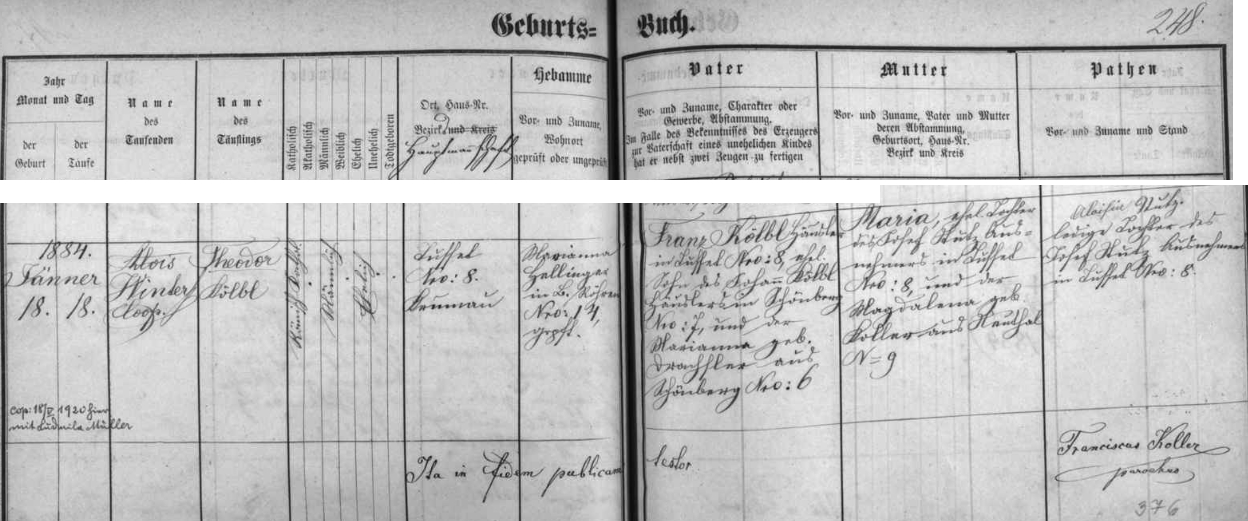 Geburts=
Buch.
248.
Jahr
Monat und Tag
der
Geburt
der
Taufe
Name
des
Taufenden
Name
des
Täuflings
Katholisch
Akatholisch
Männlich
Weiblich
Ehelich
Unehelich
Todtgeboren
Ort, Haus-Nr.
Bezirk und Kreis
Hebamme
Vor- und Zuname,
Wohnort
geprüft oder ungeprüft
Vater
Vor- und Zuname, Charakter oder
Gewerbe, Abstammung,
Im Falle des Bekenntnisses des Erzeugers
zur Vaterschaft eines unehelichen Kindes
hat er nebst zwei Zeugen zu fertigen
Mutter
Vor- und Zuname, Vater und Mutter
deren Abstammung,
Geburtsort, Haus-Nr.
Bezirk und Kreis
Pathen
Vor- und Zuname und Stand
1884.
Jänner
18. 18.
Alois
Winter
Coop.
Theodor
Kölbl
Männlich
Ehelich
Tusset
Nro: 8.
Krumau
Marianna
in B. Röhren
Nro: 14,
gepft.
Franz Kölbl Häusler
in Tusset Nro: 8, ehel.
Sohn des Johann Kölbl
Häuslers in Schönberg
Nro: 7, und der
Marianna geb.
Drachsler aus
Schönberg Nro: 6
Maria, ehel. Tochter
des Josef Stutz Aus-
nehmers in Tusset
Nro: 8, und der
Magdalena geb.
Koller aus Neuthal
N= 9
Aloisia Stutz,
ledige Tochter des
Josef Stutz Ausnehmers
in Tusset Nro: 8.
cop: 18/V 1920 hier
mit Ludmila Müller
Ita in fidem publicam
testor
Franciscus Koller
parochus
376